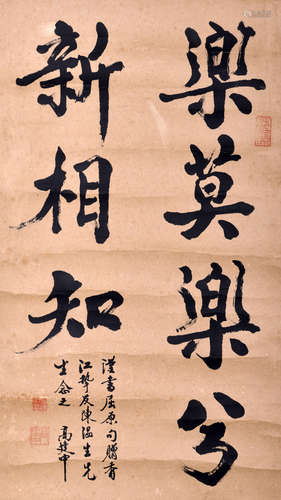 樂莫樂兮
新相知
謹書屈原句贈香
江摯友陳溫生先
生念之
高建中